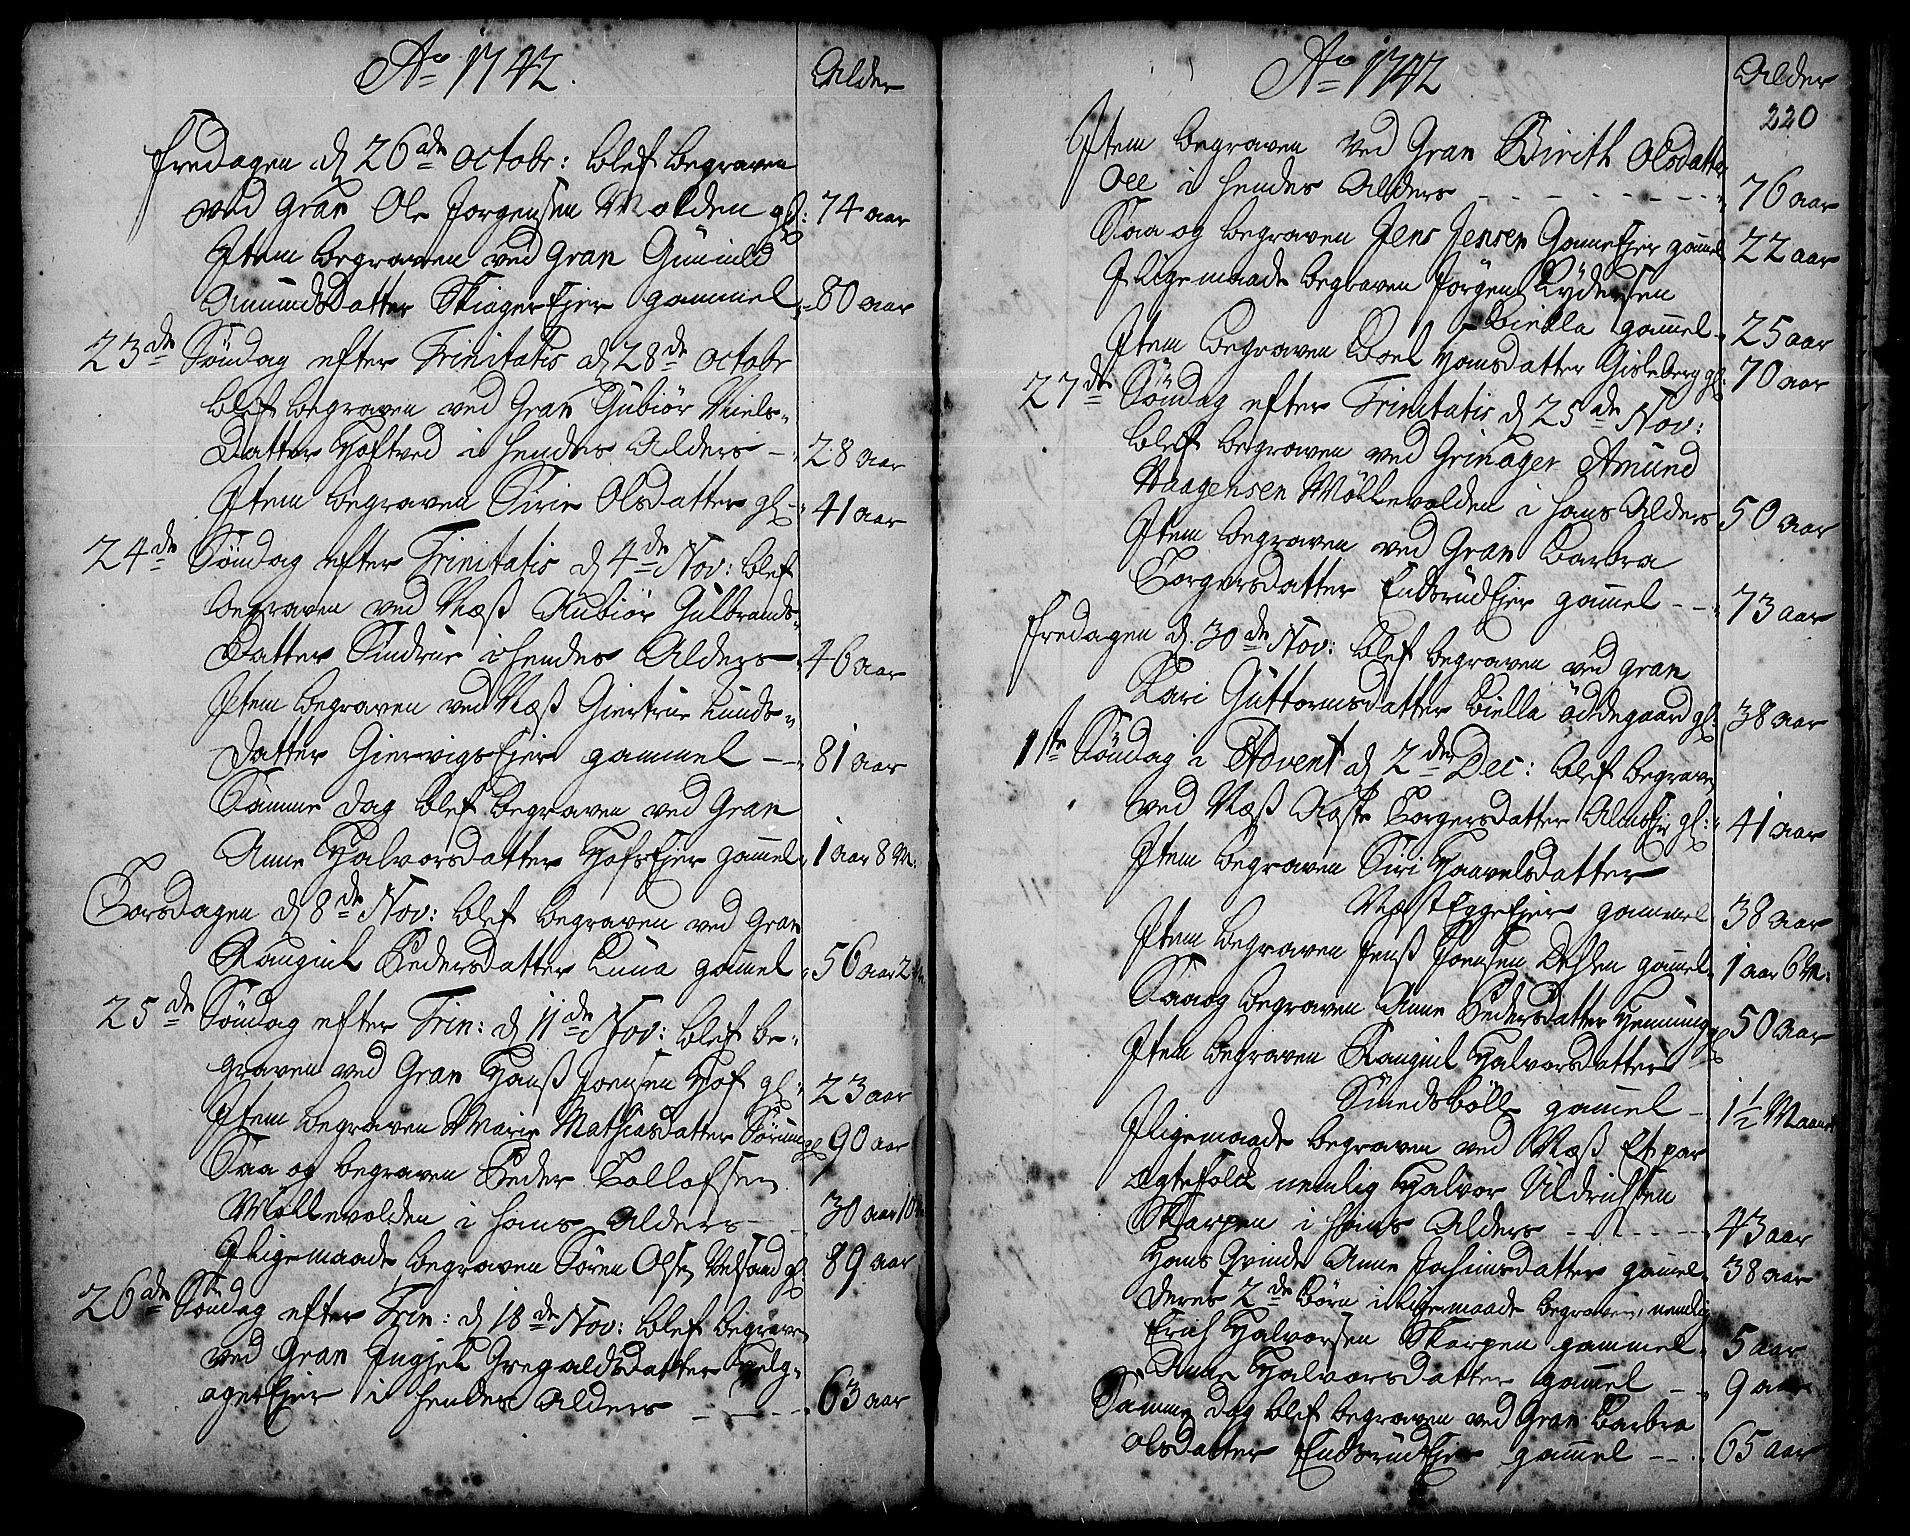 Ao 1742.
Alder
Fredagen d 26de Octobr: blef begraven
ved Gran Ole Jorgensen Molden gl: 74 aar
Item begraven ved Gran Gunild
Amundsdatter Skiager Ejer gammel 80 aar
23de Söndag efter Trinitatis d 28de Octobr
blef begraven ved Gran Gubiör Niels-
Datter Hoftved i hendes Alders - 28 aar
Item begraven Sirie Olsdatter gl - 41 aar
24de Söndag efter Trinitatis d 4de Nov: blef
begraven ved Næss Aubiör Gulbrands-
Datter i hendes Alders - 46 aar
Item begraven ved Næss Giertrue Lunds-
datter Giervigs Ejer gammel - 81 aar
Samme dag blef begraven ved Gran
Anne Halvorsdatter Hofs Ejer gamel 1 aar 8 M:
Torsdagen d 8de Nov: blef begraven ved Gran
Rangnil Pedersdatter Luna gamel 56 aar 2
25de Söndag efter Trin: d 11de Nov: blef be-
graven ved Gran Hanss Joensen Hof gl: 23 aar
Item begraven Marie Mathiasdatter Sörum gl 90 aar
Saa og begraven Peder Tollofsen
Möllevolden i hans Alders - 30 aar 10
Iligemaade begraven Sören Olsen gl 89 aar
26de Söndag efter Trin: d 18de Nov: blef begraven
ved Gran Ingjel Gregaldsdatter Helg-
ager Ejer i hendes Alders - - - 63 aar
Ao 1742
Alder
220
Item begraven ved Gran Birith Olsdatter
Oee i hendes Alders - - - - - - - 76 aar
Saa og begraven Jens Jensen Ganne Ejer gamel 22 aar
Iligemaade begraven Jörgen Rydersen
Biella gamel 25 aar
Item begraven Boel Hansdatter Gisleberg gl: 70 aar
27de Söndag efter Trinitatis d 25de Nov:
blef begraven ved Grinager Amund
Haagensen Möllevolden i hans Alders 50 aar
Item begraven ved Gran Barbra
Torgersdatter Endsrud Ejer gamel - - 73 aar
Fredagen d. 30de Nov: blef begraven ved Gran
Kari Guttormsdatter Biella Öddegaard gl: 38 aar
1ste Söndag i Advent d 2den Dec: blef begraven
ved Næss Aaste Torgersdatter Alms Ejr gl: 41 aar
Item begraven Siri Haavelsdatter
Næst Egge Ejer gammel 38 aar
Item begraven Jenss Joensen Dahlen gamel 1 aar 6 M:
Saa og begraven Anne Pedersdatter Henning gl 50 aar
Item begraven Rangnil Halvorsdatter
Smedsböll gamel - 1 1/2 Maaned
Iligemaade begraven ved Næss Et par
ægtefolck nemlig Halvor Uldrichsen
Skarpen i hans Alders - - - - - 43 aar
Hans Qvinde Anne Jochimsdatter gamel 38 aar
deres 2de Börn iligemaade begraven, nemlig
Erich Halvorsen Skarpen gammel 5 aar
Anne Halvorsdatter gamel - 9 aar
Samme dag blef begraven ved Gran Barbra
Olsdatter Endsrud Ejer gamel - - 65 aar